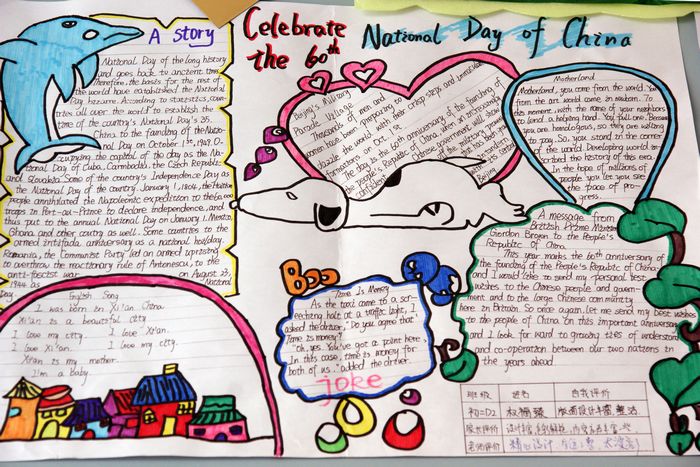 A Story
Celebrate
the 60th
National Day of China
National Day of the long history
and goes back to ancient time
Therefore, the basis for the rest of
the world have established the National
Day bizarre. According to statistics, coun-
tries all over the world to establish the
time of the country's National Day's 35.
China to the founding of the Natio-
nal Day on October 1st, 1949.
Occupying the capital of the city as the Na-
tional Day of Cuba, Cambodia, the Czech Republic
and Some of the country's Independence Day as
the National Day of the country. January 1, 1804, the
people annihilated the Napoleonic expedition to the 60000
troops in Port-au-Prince to declare independence, and
thus put to the annual National Day on January 1. Mexico,
Ghana and other country as well. Some countries to the
armed intifada anniversary as a national holiday.
Romania, the Communist Party led an armed uprising
to overthrow the reactionary rule of Antonescu, to the
anti-fascist war on August 23,
1944 as National
Day.
English Song
I was born in Xi'an China
Xi'an is a beautiful city
I love my city. I love Xi'an
I love Xi'an. I love my city.
Xi'an is my mother.
I'm a baby.
Beijing's Military
Parade Village
Thousands of men and
women have been preparing to
dazzle the world with their crisp steps and immaculate
formations on Oct. 1st.
The day is the 60th anniversary of the founding of
the people's Republic of China, and an
Chinese government will show
of the military
Beijing
Motherland
Motherland, you come from the world. You
from the art world come in wisdom. To
this moment, with the name of your neighbors
to lend a helping hand. You full one. Because
you are homologous, so they are willing
to pay. So, you stand in the corner
of the world. Developing world in-
scribed the history of this era.
In the hope of millions of
people you let you see
the face of pro-
gress.
A message from
British Prime Minister
Gordon Brown to the People's
Republic of China
This year marks the 60th anniversary of
the founding of the People's Republic of China,
and I would like to send my personal best
wishes to the Chinese people and govern-
ment and to the large Chinese community
here in Britain. So once again let me send my best wishes
to the people of China on this important anniversary
and I look for ward to growing ties of understand
and co-operation between our two nations in
the years ahead.
Boo
Time Is Money
As the taxi came to a scr-
eeching halt at a traffic light, I
asked the driver, "Do you agree that
'Time is money'?"
"Oh, yes. You've got a point here,
In this case, time is money for
both of us." added the driver.
joke
班级 姓名 自我评价
初二D2 权楠臻 版面设计丰富,整洁
家长评价
老师评价 精心设计